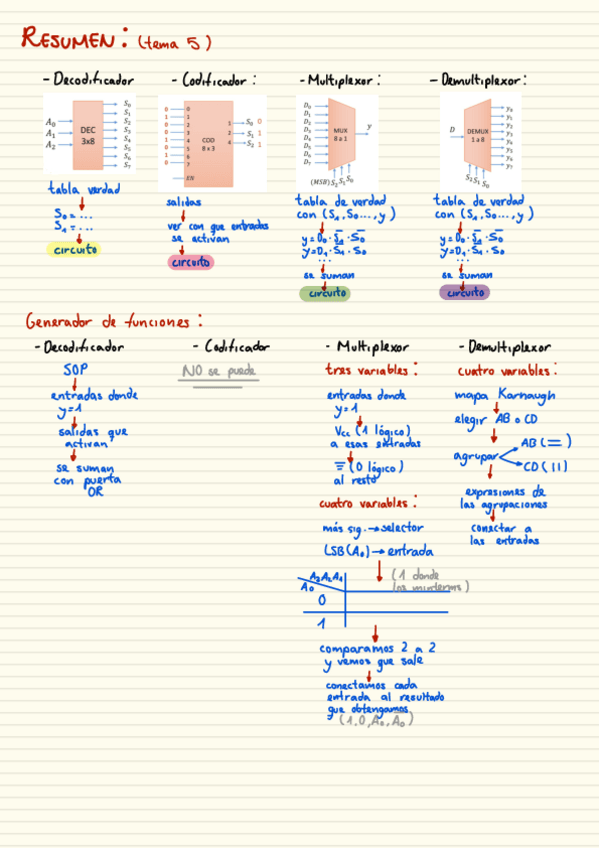 RESUMEN: (tema 5)
- Decodificador
A₀
A₁
A₂
DEC
3x8
S₀
S₁
S₂
S₃
S₄
S₅
S₆
S₇
tabla verdad
S₀ = ...
S₁ = ...
circuito
- Codificador:
0
1
2
3
4
5
6
7
EN
COD
8 x 3
1 S₀ 0
2 S₁ 1
4 S₂ 1
salidas
ver con que entradas
se activan
circuito
- Multiplexor:
D₀
D₁
D₂
D₃
D₄
D₅
D₆
D₇
MUX
8 a 1
y
(MSB) S₂ S₁ S₀
tabla de verdad
con (S₁, S₀..., y)
y = D₀ · S̅₁ · S̅₀
y = D₁ · S₁ · S₀
...
se suman
circuito
- Demultiplexor:
D
DEMUX
1 a 8
y₀
y₁
y₂
y₃
y₄
y₅
y₆
y₇
S₂ S₁ S₀
tabla de verdad
con (S₁, S₀..., y)
y = D₀ · S̅₁ · S̅₀
y = D₁ · S₁ · S₀
...
se suman
circuito
Generador de funciones:
- Decodificador
SOP
entradas donde
y=1
salidas que
activan
se suman
con puerta
OR
- Codificador
NO se puede
- Multiplexor
tres variables:
entradas donde
y=1
Vcc (1 lógico)
a esas entradas
(0 lógico)
al resto
cuatro variables:
más sig. → selector
LSB (A₀) → entrada
(1 donde
los minterms)
A₃A₂A₁
A₀
0
1
comparamos 2 a 2
y vemos que sale
conectamos cada
entrada al resultado
que obtengamos
(1, 0, A₀, A̅₀)
- Demultiplexor
cuatro variables:
mapa Karnaugh
elegir AB o CD
agrupar
AB (=)
CD (||)
expresiones de
las agrupaciones
conectar a
las entradas